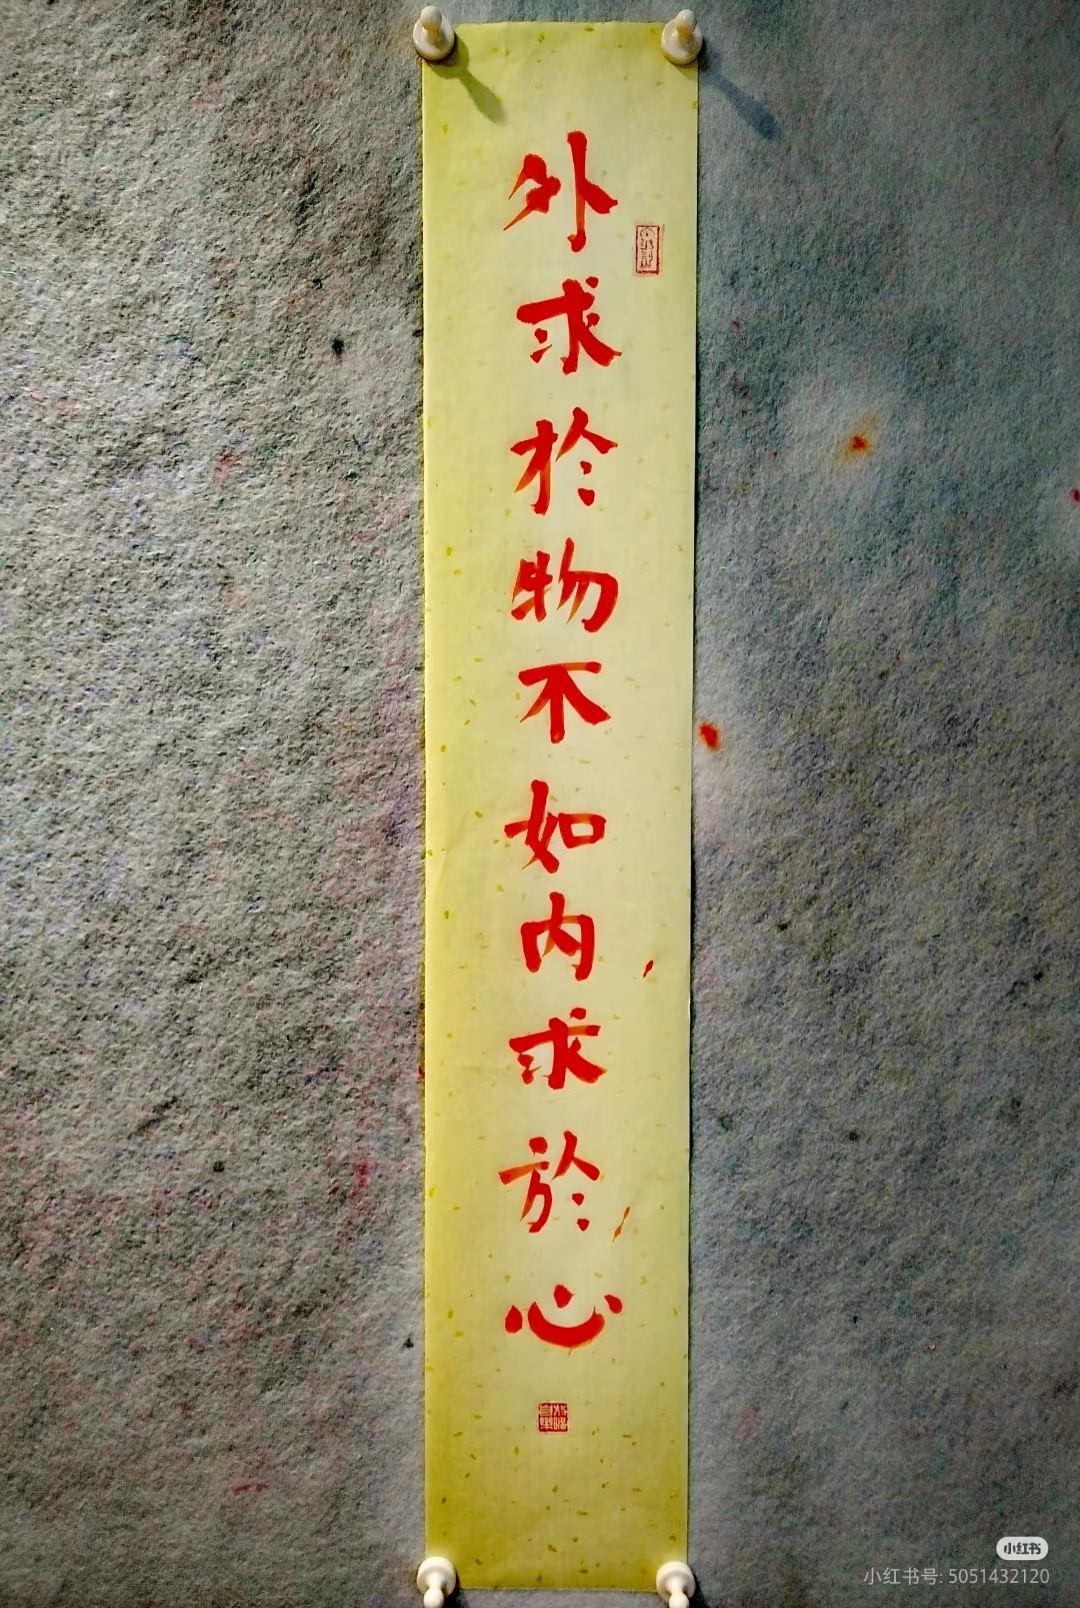 外求於物不如内求於心
小红书
小红书号: 5051432120